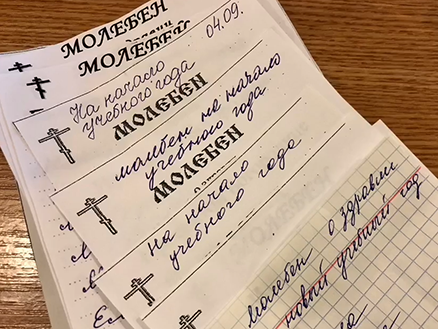 МОЛЕБЕН
МОЛЕБЕН
04.09.
На начало
учебного года
МОЛЕБЕН
молебен на начало
учебного года
МОЛЕБЕН
на начало
учебного года
молебен о здравии
новый учебный год